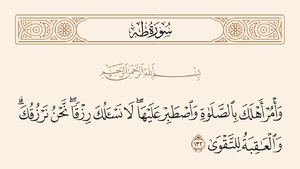 سُورَةُ طه
بِسْمِ اللَّهِ الرَّحْمَٰنِ الرَّحِيمِ
وَأْمُرْ أَهْلَكَ بِالصَّلَاةِ وَاصْطَبِرْ عَلَيْهَا ۖ لَا نَسْأَلُكَ رِزْقًا ۖ نَّحْنُ نَرْزُقُكَ ۗ
وَالْعَاقِبَةُ لِلتَّقْوَىٰ ١٣٢